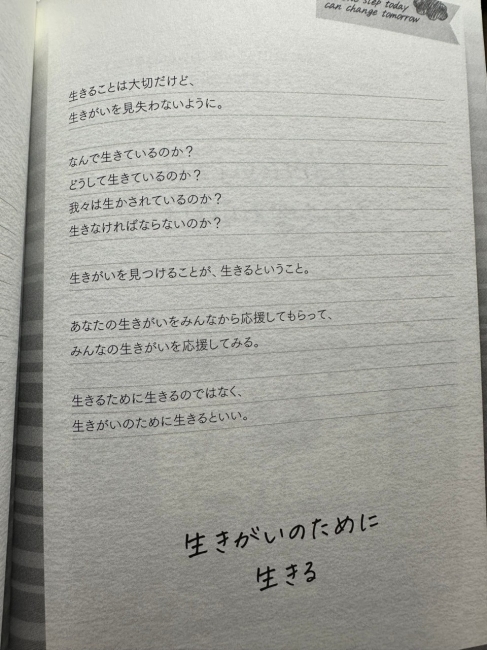 step today
can change tomorrow
生きることは大切だけど、
生きがいを見失わないように。
なんで生きているのか？
どうして生きているのか？
我々は生かされているのか？
生きなければならないのか？
生きがいを見つけることが、生きるということ。
あなたの生きがいをみんなから応援してもらって、
みんなの生きがいを応援してみる。
生きるために生きるのではなく、
生きがいのために生きるといい。
生きがいのために
生きる